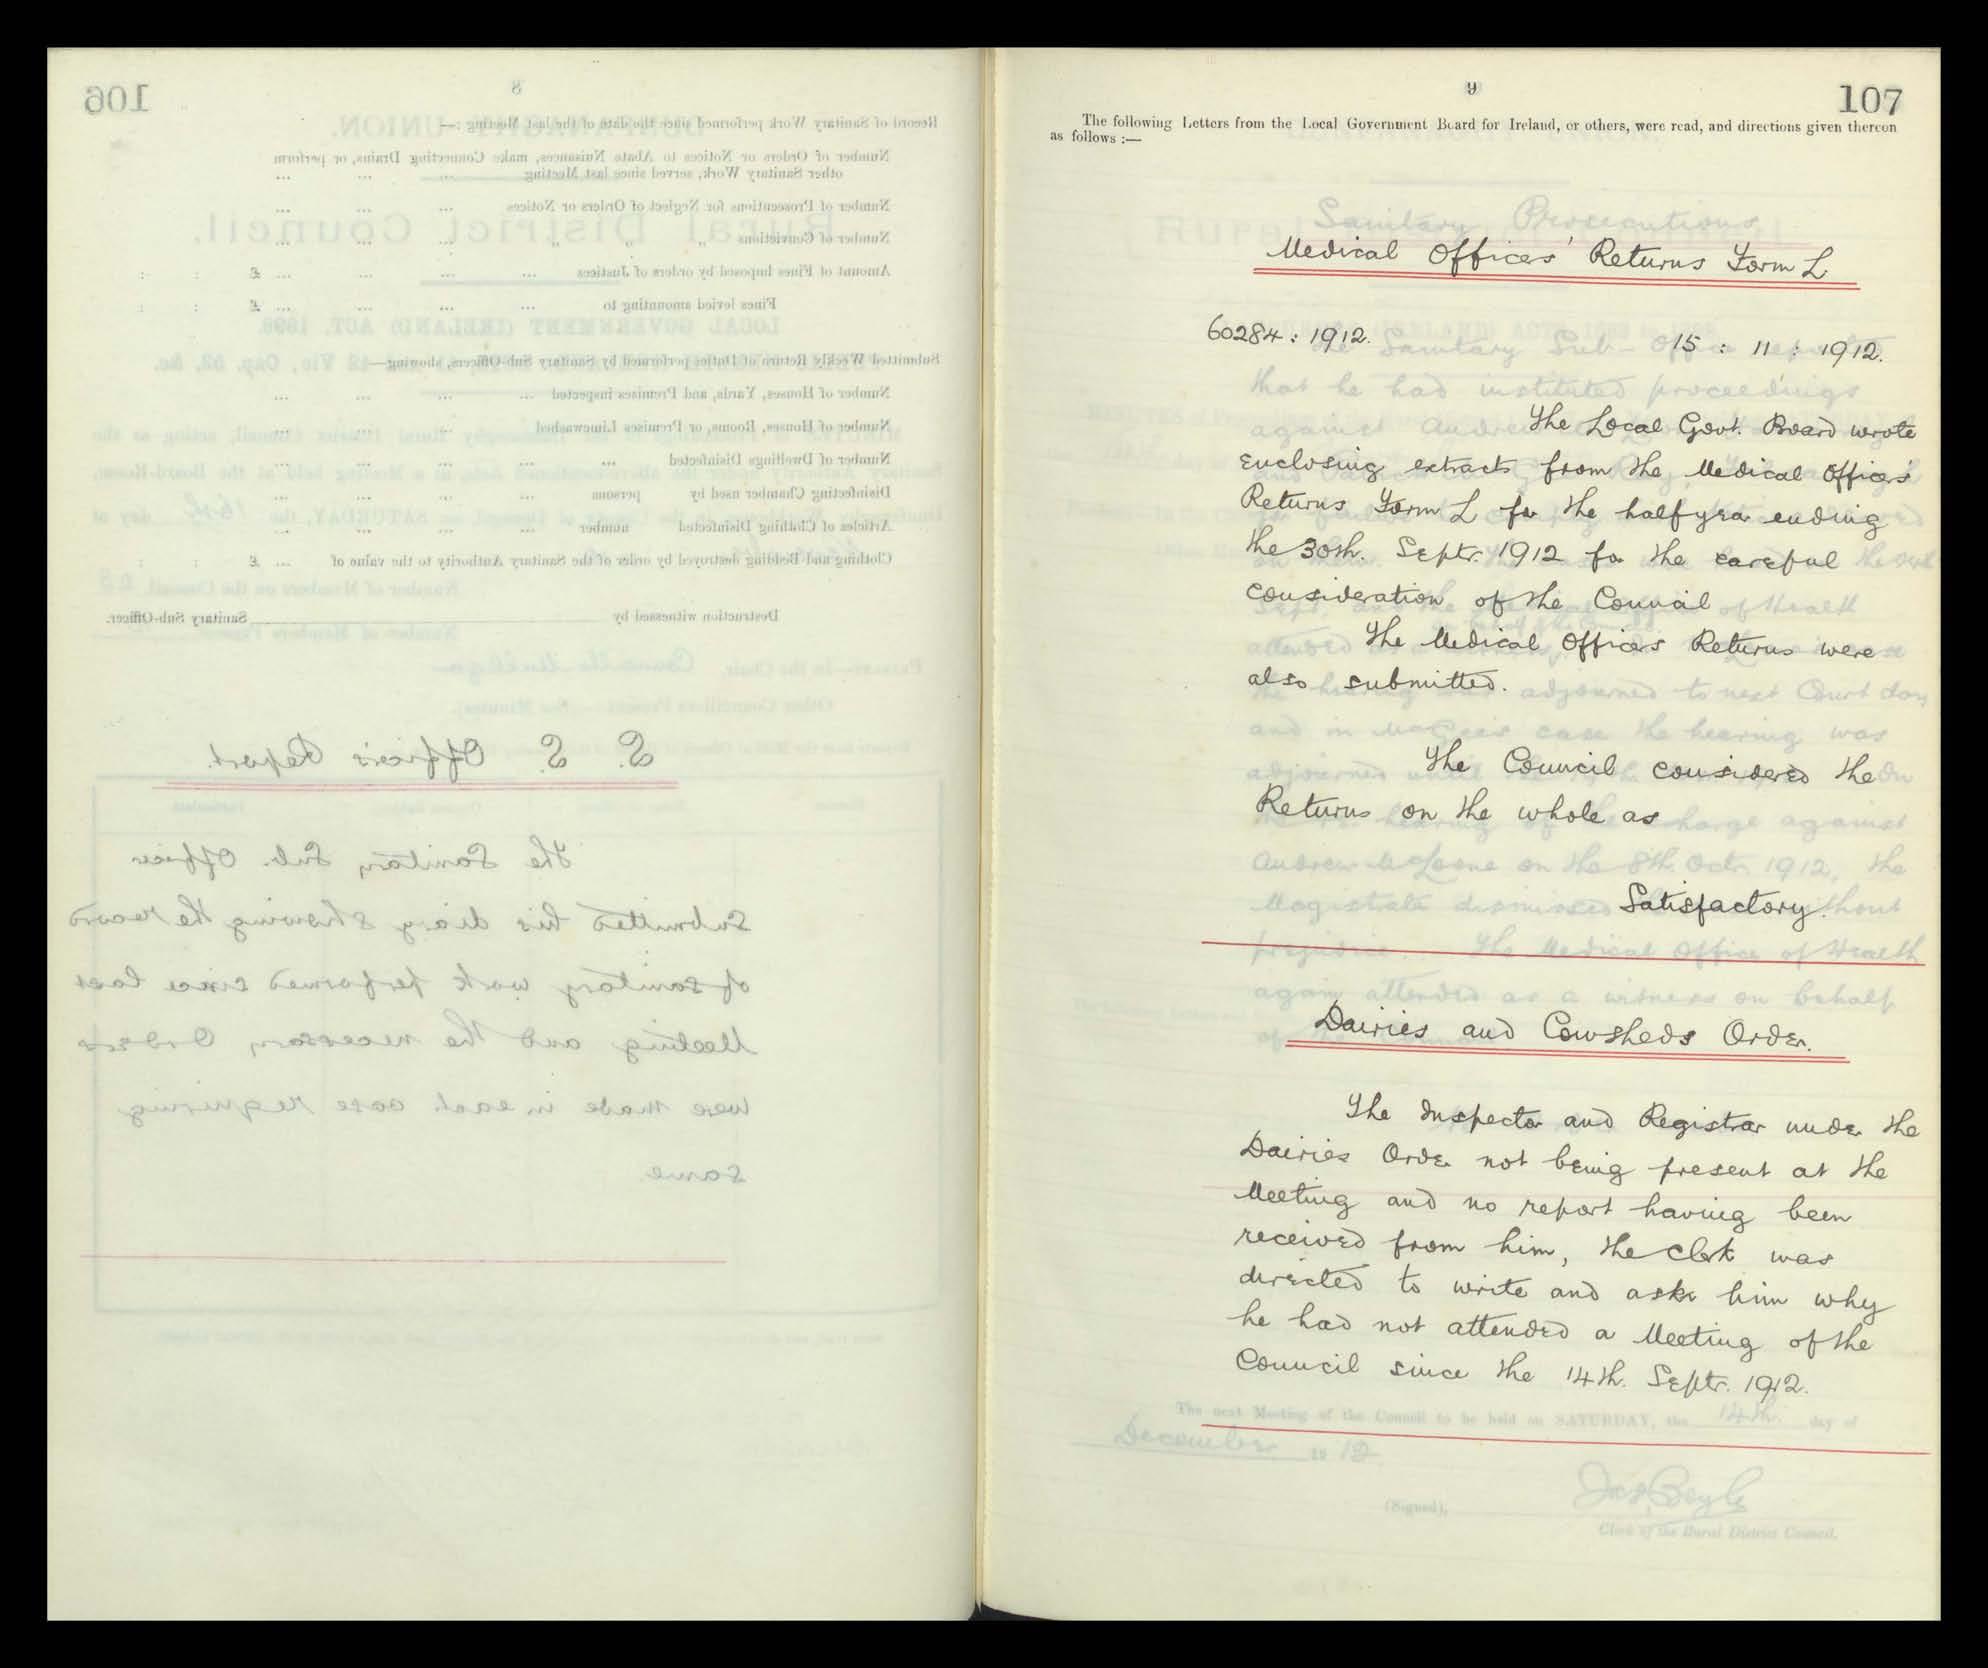 106
8
Record of Sanitary Work performed since the date of the last Meeting :—
Number of Orders or Notices to Abate Nuisances, make Connecting Drains, or perform
other Sanitary Work, served since last Meeting ... ... ...
Number of Prosecutions for Neglect of Orders or Notices ... ... ...
Number of Convictions „ „ „ ... ... ...
Amount of Fines Imposed by orders of Justices ... ... ... £ : :
Fines levied amounting to ... ... ... £ : :
Submitted Weekly Return of Duties performed by Sanitary Sub-Officers, showing—
Number of Houses, Yards, and Premises inspected ... ... ... ...
Number of Houses, Rooms, or Premises Limewashed ... ... ... ...
Number of Dwellings Disinfected ... ... ... ... ...
Disinfecting Chamber used by persons ... ... ... ...
Articles of Clothing Disinfected number ... ... ... ...
Clothing and Bedding destroyed by order of the Sanitary Authority to the value of ... £ : :
Destruction witnessed by Sanitary Sub-Officer.
S. S. Officer's Report.
The Sanitary Sub. Officer
submitted his diary showing the record
of sanitary work performed since last
Meeting and the necessary Orders
were made in each case requiring
same.
9
107
The following Letters from the Local Government Board for Ireland, or others, were read, and directions given thereon
as follows :—
Medical Officers' Returns Form L
60284 : 1912. 15 : 11 : 1912.
The Local Govt. Board wrote
enclosing extracts from the Medical Officers'
Returns Form L for the half year ending
the 30th. Septr. 1912 for the careful
consideration of the Council
The Medical Officers Returns were
also submitted.
The Council considered the
Returns on the whole as
Satisfactory.
Dairies and Cowsheds Order.
The Inspector and Registrar under the
Dairies Order not being present at the
Meeting and no report having been
received from him, the Clerk was
directed to write and ask him why
he had not attended a Meeting of the
Council since the 14th. Septr. 1912.
The next Meeting of the Council to be held on SATURDAY, the 14th. day of
December 19 12
(Signed), Jas. Boyle
Clerk of the Rural District Council.